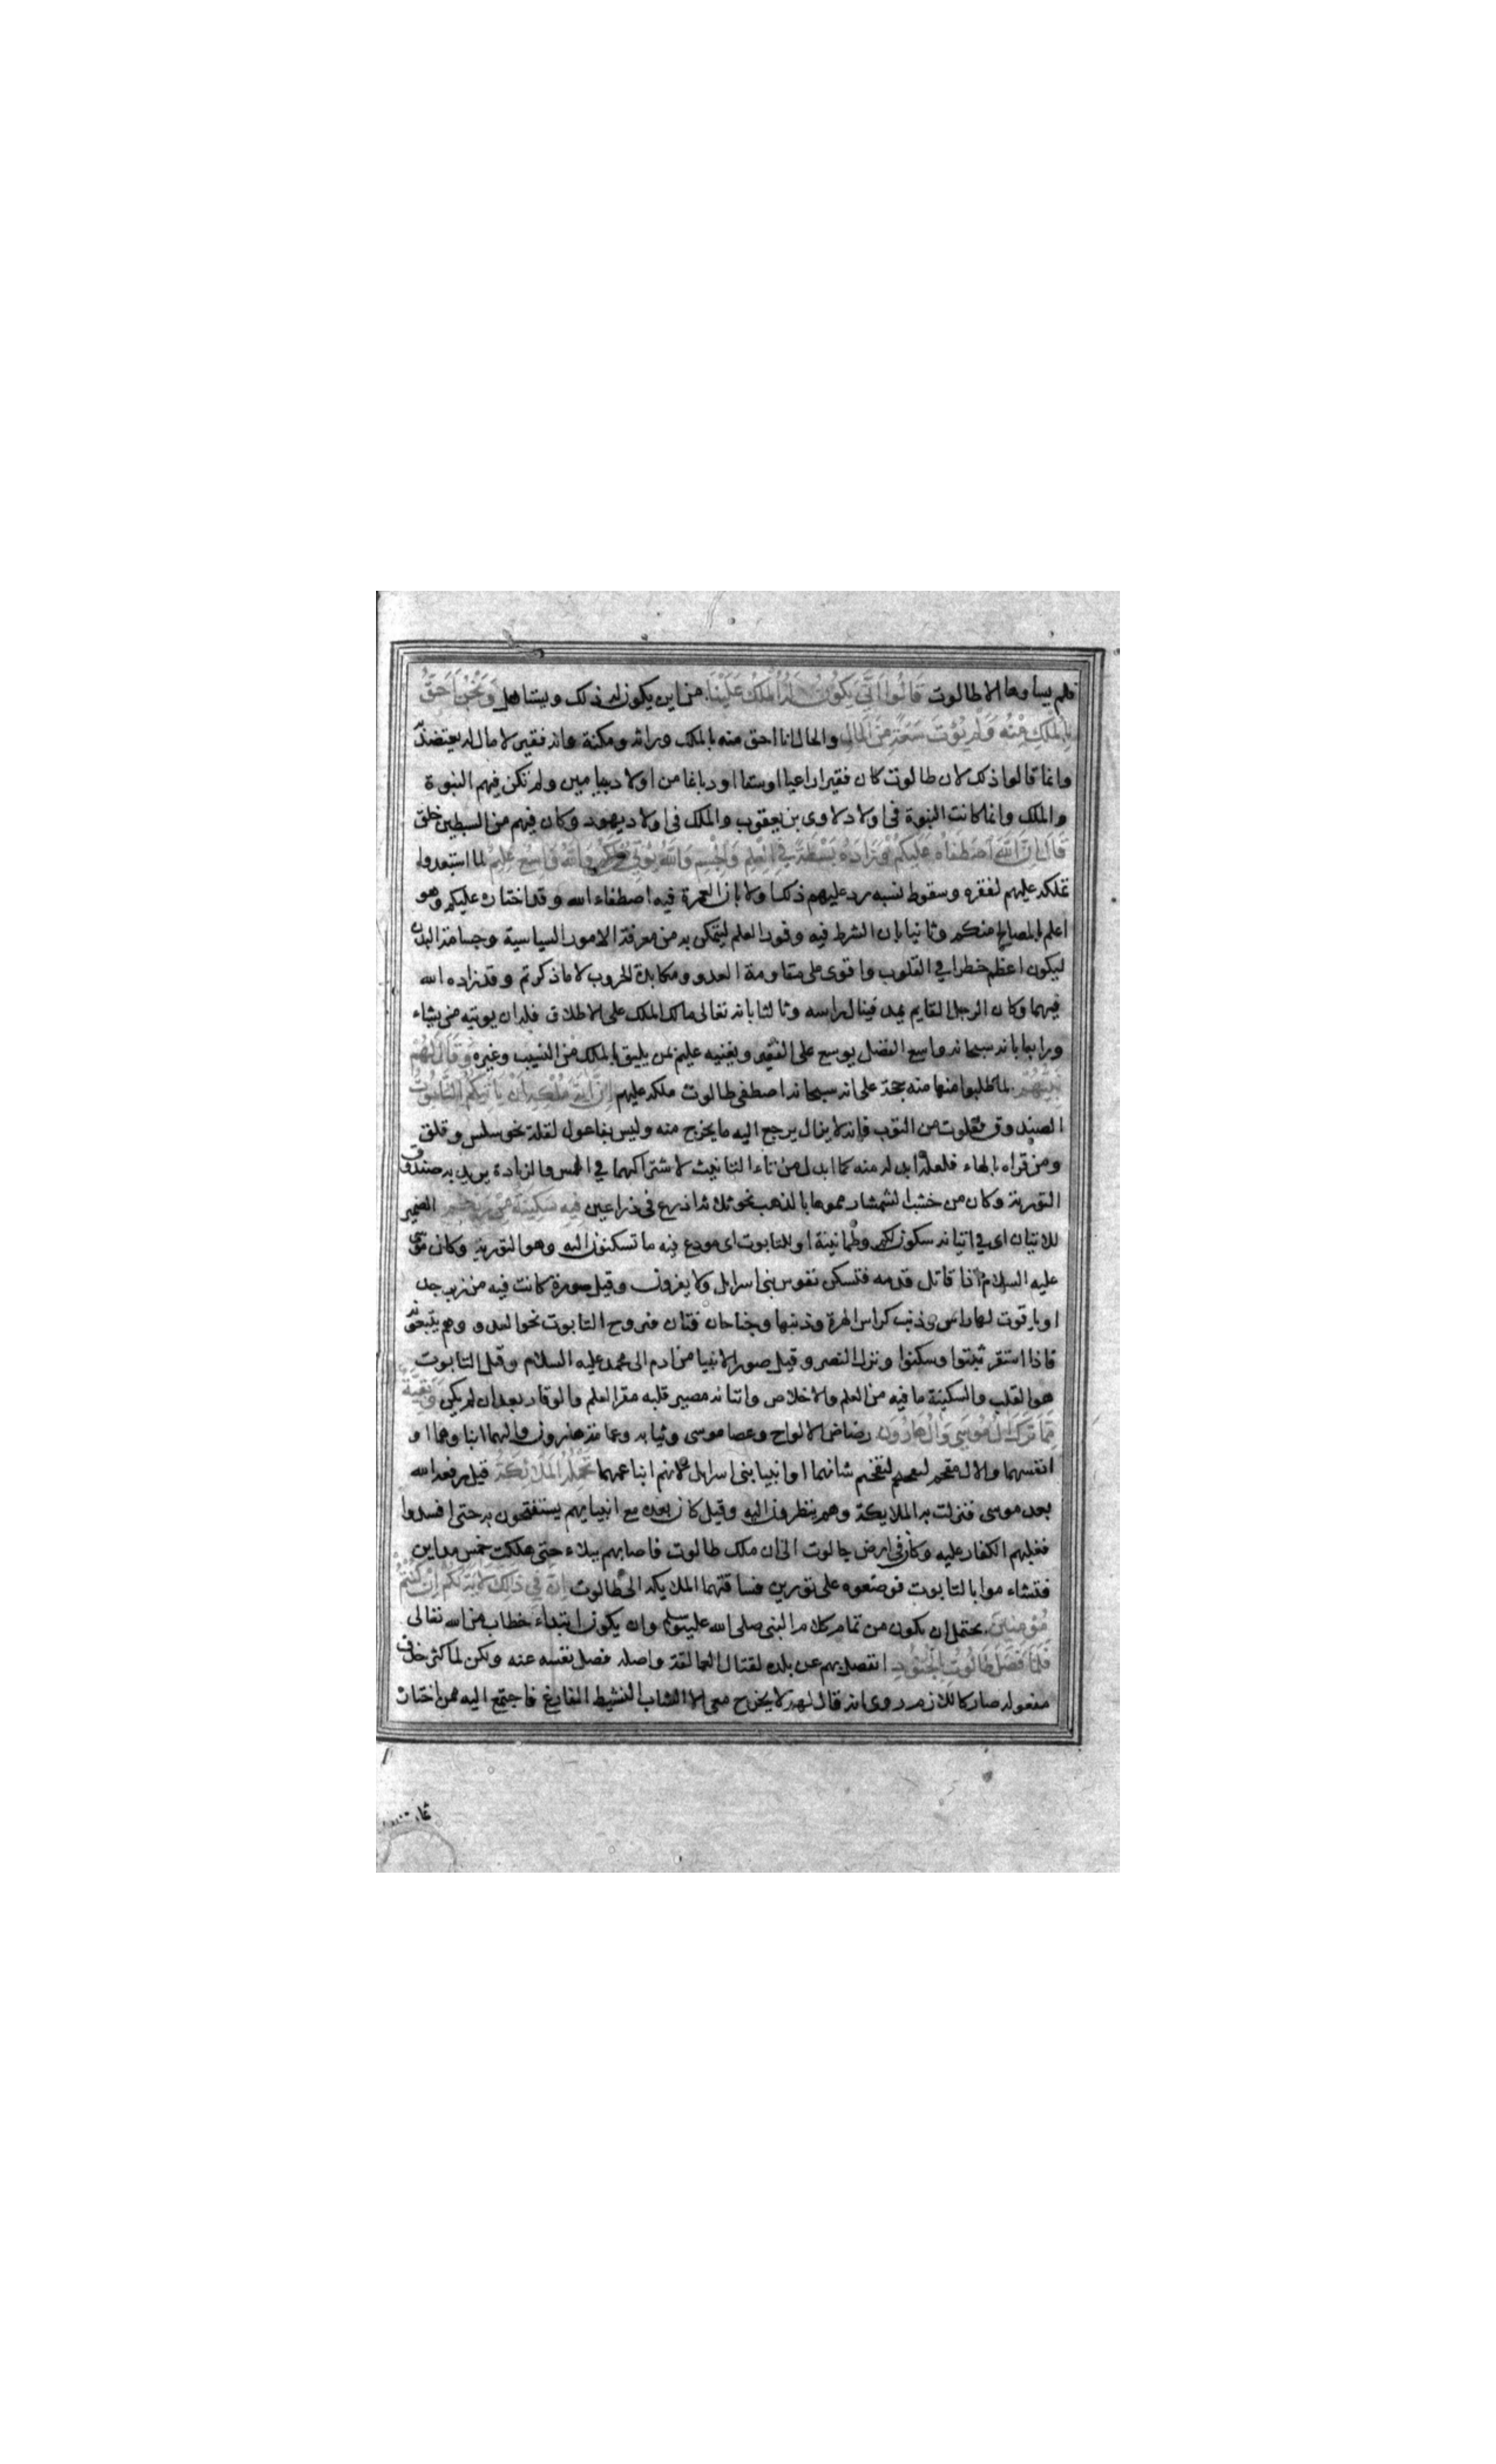 فلم يساوها الا طالوت قَالُوا أَنَّى يَكُونُ لَهُ الْمُلْكُ عَلَيْنَا من اين يكون له ذلك ويستاهل وَنَحْنُ أَحَقُّ
بِالْمُلْكِ مِنْهُ وَلَمْ يُؤْتَ سَعَةً مِنَ الْمَالِ والحال انا احق منه بالملك وراثة ومكنة وانه فقير لا مال له يعتضد به
وانما قالوا ذلك لان طالوت كان فقيرا راعيا او سقا او دباغا من اولاد بنيامين ولم تكن فيهم النبوة
والملك وانما كانت النبوة في اولاد لاوى بن يعقوب والملك في اولاد يهود وكان فيهم من السبطين خلق
قَالَ إِنَّ اللَّهَ اصْطَفَاهُ عَلَيْكُمْ وَزَادَهُ بَسْطَةً فِي الْعِلْمِ وَالْجِسْمِ وَاللَّهُ يُؤْتِي مُلْكَهُ وَاللَّهُ وَاسِعٌ عَلِيمٌ لما استبعدوا
تملكه عليهم لفقره وسقوط نسبه رد عليهم ذلك اولا بان العمدة فيه اصطفاء الله وقد اختاره عليكم وهو
اعلم بالمصالح منكم وثانيا بان الشرط فيه وفور العلم ليتمكن به من معرفة الامور السياسية وجسامة البدن
ليكون اعظم خطرا في القلوب واقوى على مقاومة العدو ومكابدة الحروب لا ما ذكرتم وقد زاده الله
فيهما وكان الرجل القايم يمد فينال راسه وثالثا بانه تعالى مالك الملك على الاطلاق فله ان يوتيه من يشاء
ورابعا بانه سبحانه واسع الفضل يوسع على الفقير ويغنيه عليم بمن يليق بالملك من النسيب وغيره وَقَالَ لَهُمْ
نَبِيُّهُمْ لما طلبوا منها منه حجة على انه سبحانه اصطفى طالوت ملكه عليهم إِنَّ آيَةَ مُلْكِهِ أَنْ يَأْتِيَكُمُ التَّابُوتُ
الصندوق فعلوت من التوب فانه لا يزال يرجع اليه ما يخرج منه وليس بفاعول لقلة نحو سلس وقلق
ومن قراه بالهاء فلعله ابدله منه كما ابدل من تاء التانيث لاشتراكهما في الهمس والزيادة يريد به صندوق
التورية وكان من خشب الشمشار مموها بالذهب نحو ثلثة اذرع في ذراعين فِيهِ سَكِينَةٌ مِنْ رَبِّكُمْ الضمير
للاتيان اي في اتيانه سكون لكم وطمانينة او للتابوت اي مودع فيه ما تسكنون اليه وهو التورية وكان موسى
عليه السلام اذا قاتل قدمه فتسكن نفوس بني اسرايل ولا يفرون وقيل صورة كانت فيه من زبرجد
او ياقوت لها راس وذنب كراس الهرة وذنبها وجناحان فتان فيزوح التابوت نحو العدو وهم يتبعونه
فاذا استقر ثبتوا وسكنوا ونزل النصر وقيل صور الانبيا من ادم الى محمد عليه السلام وقيل التابوت
هو القلب والسكينة ما فيه من العلم والاخلاص واتيانه مصير قلبه مقر العلم والوقار بعد ان لم يكن وَبَقِيَّةٌ
مِمَّا تَرَكَ آلُ مُوسَى وَآلُ هَارُونَ رضاض الالواح وعصا موسى وثيابه وعمامة هارون والهما ابناوهما او
انفسهما والال مقحم لتفخيم شانهما او انبيا بني اسرايل لانهم ابنا عمهما تَحْمِلُهُ الْمَلَائِكَةُ قيل رفعه الله
بعد موسى فنزلت به الملايكة وهم ينظرون اليه وقيل كان بعده مع انبيايهم يستفتحون به حتى افسدوا
فغلبهم الكفار عليه وكان في ارض جالوت الى ان ملك طالوت فاصابهم ببلاء حتى هلكت خمس مداين
فتشاءموا بالتابوت فوضعوه على ثورين فساقتهما الملايكة الى طالوت إِنَّ فِي ذَلِكَ لَآيَةً لَكُمْ إِنْ كُنْتُمْ
مُؤْمِنِينَ يحتمل ان يكون من تمام كلام النبي صلى الله عليه وسلم وان يكون ابتداء خطاب من الله تعالى
فَلَمَّا فَصَلَ طَالُوتُ بِالْجُنُودِ انفصل بهم عن بلده لقتال العمالقة واصله فصل نفسه عنه ولكن لما كثر حذف
مفعوله صار كاللازم روى انه قال لهم لا يخرج معي الا الشاب النشيط الفارغ فاجتمع اليه ممن اختار